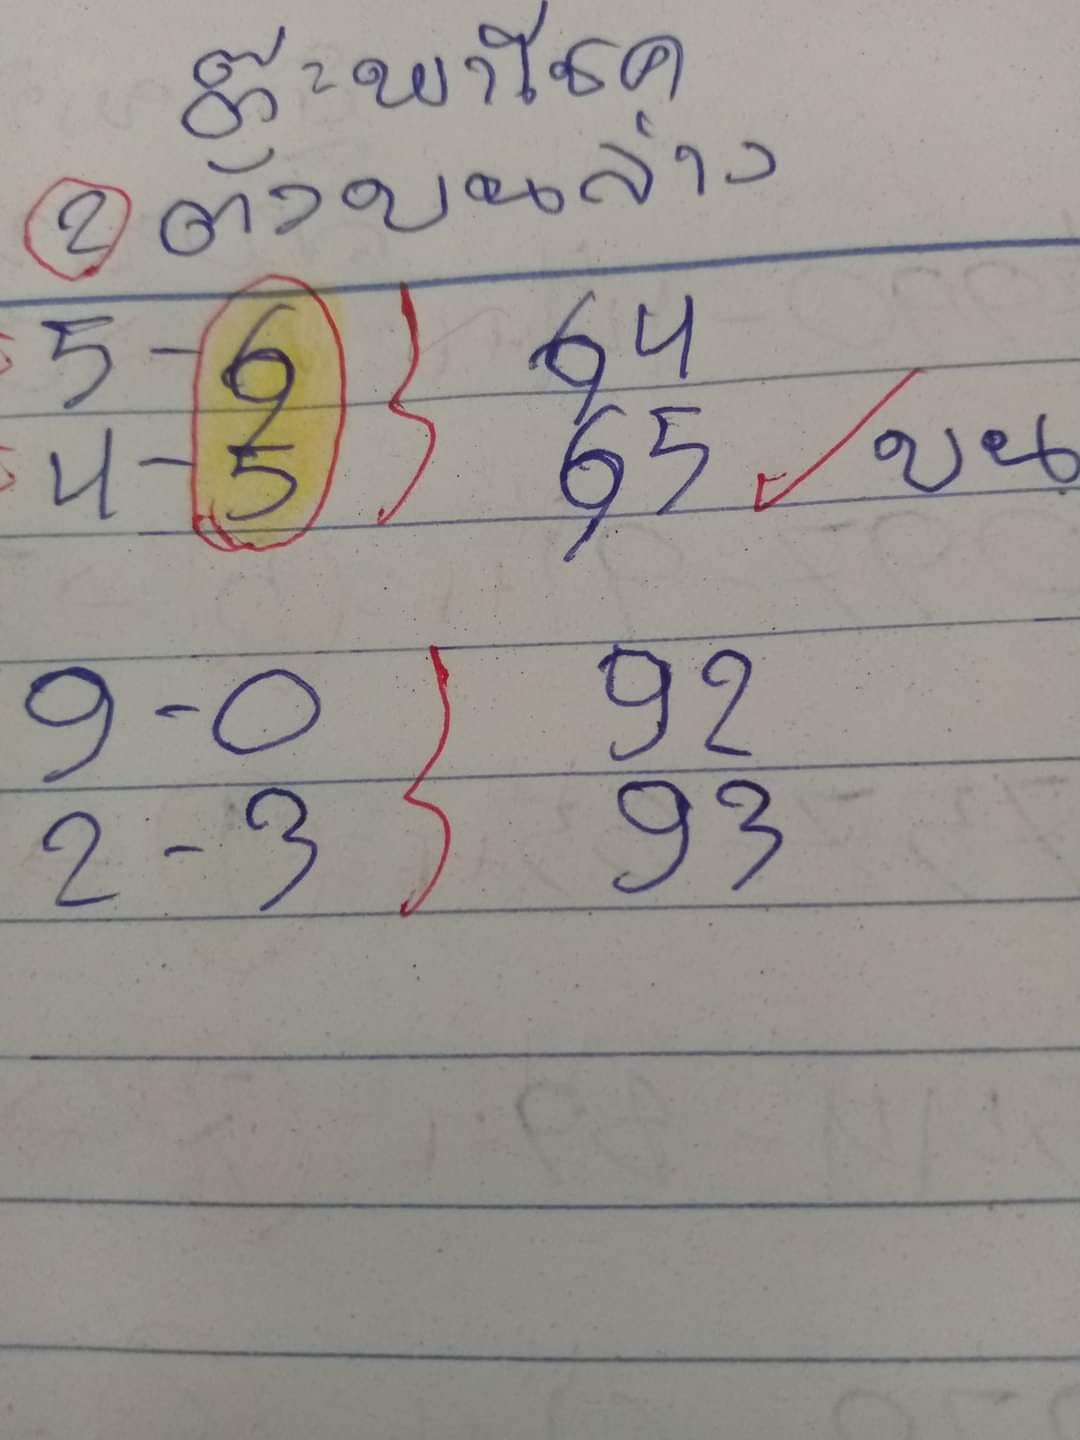 ตี๋ะพาโชค
2 ตัวบนล่าง
5-6 } 64
4-5 } 65 ✓ บน
9-0 } 92
2-3 } 93